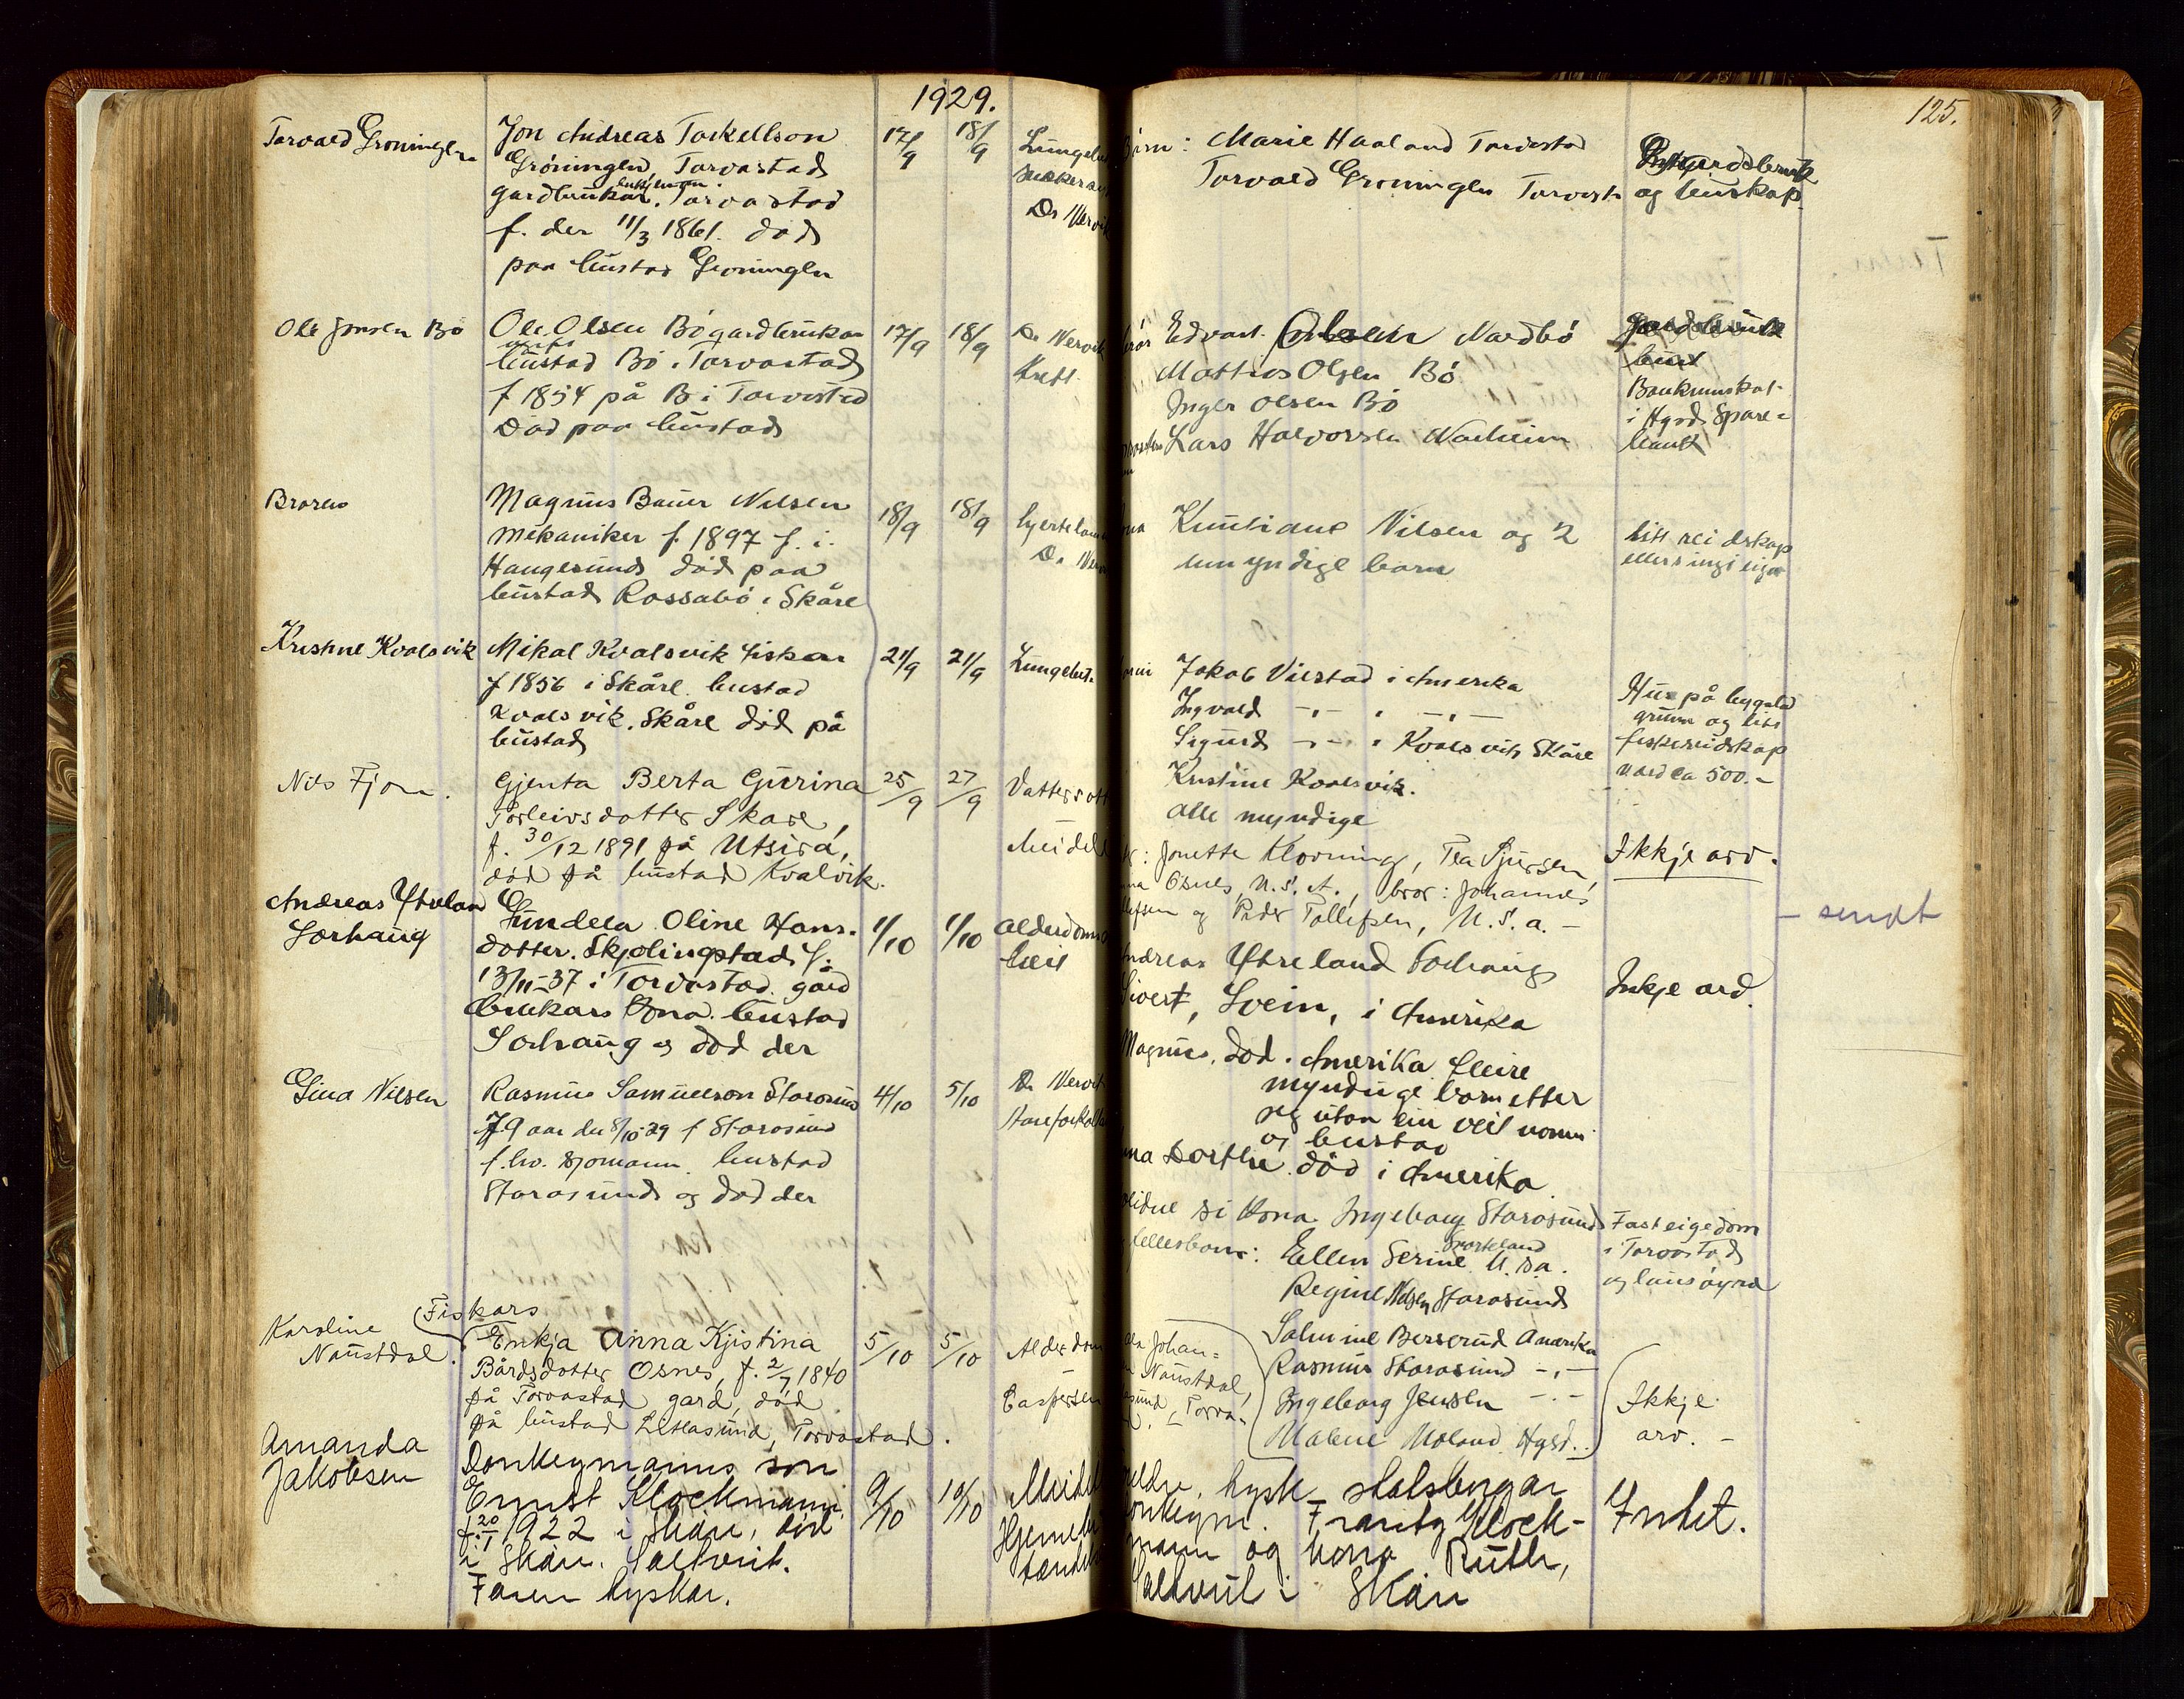 1929.
125.
Torvald Gröningen
Jon Andreas Torkellson
Gröningen, Torvastad
enkjeman.
gardbrukar. Torvastad
f. den 11/3 1861. död
paa bustad Groningen
17/9 18/9
Lungebet
Dr Vervik
Börn: Marie Haaland Torvastad
Torvald Groningen Torvast.
og buskap
Ole Jonsen Bö
Ole Olsen Bö gardbrukar
bustad Bö i Torvastad
f 1854 på Bö i Torvastad
Död paa bustad
17/9 18/9
Dr Vervik
Kreft
Edvart Olsen Nordbö
Mattias Olsen Bö
Inger Olsen Bö
Lars Halvorsen Norheim
Gardsbruk
Bankinnskot
i Hgsd. Spare-
bank
Broren
Magnus Bauer Nilsen
mekaniker f. 1897 f. i.
Haugesund död paa
bustad Rossabö i Skåre
18/9 18/9
Hjertelam
Dr Ver
Nilsen og 2
umyndige barn
litt reidskap
ellers ingi eiga
Kristine Kvalsvik
Mikal Kvalsvik fiskar
f 1856 i Skåre. bustad
Kvalsvik, Skåre död på
bustad
21/9 21/9
Lungebet.
Jakob Vikstad i Amerika
Ingvald -,- i -,-
Sigurd -,- i Kvalsvik Skåre
Kristine Kvalsvik.
alle myndige
Hus på bygsla
grunn og litt
fiskereidskap
verd ca 500.-
Nils Fjon.
Gjenta Berta Gurina
Torleivsdotter Skare,
f. 30/12 1891 på Utsira,
död på bustad Kvalvik.
25/9 27/9
Vattersott
Meidell
: Jonette Klovning, Tea Sjursen,
Osnes, U.S.A., bror: Johannes
lefsen og Peder Tollefsen, U.S.a. -
Ikkje arv.
- sendt
Andreas Ytreland
Sorhaug
Gundela Oline Hans-
dotter. Skjolingstad f.
13/11-37 i Torvastad. gård
brukars kona. bustad
Sorhaug og död der
1/10 1/10
Alderdoms
beit
Andreas Ytreland Sorhaug
Sivert, Svein, i Amerika
Magnus, död i Amerika fleire
myndige born etter
seg utan ein veit namn
og bustad
Dorthe. död i Amerika
Inkje arv.
Gina Nilsen
Rasmus Samuelson Storosund
79 aar den 8/10-29 f Storasund
f.hv. sjomann. bustad
Storasund og död der
4/10 5/10
Dr Vervik
si kona Ingeborg Storasund
fellesborn: Ellen Serine U.S.a.
Regine Nilsen Storasund
Salmine Berserud Amerika
Rasmus Storasund -,-
Ingeborg Jensen -,-
Malene Moland Hgsd.
Fast eigedom
i Torvastad
og lausöyra
Karoline
Naustdal.
(Fiskars
Enkja Anna Kjistina
Bårdsdotter Osnes, f. 2/7 1840
på Torvastad gard, död
på bustad Litlasund, Torvastad.
5/10 5/10
Alderdom
Caspersen
Johan-
Naustdal,
sund i Torva-
Ikkje
arv. -
Amanda
Jakobsen
Donkeymanns son
Ernst Klockmann
f. 20/1 1922 i Skåre, död
i Skåre. Saltveit.
Faren tyskar.
9/10 10/10
Meidell
Hjerne
eldre, tysk statsborgar
donkeym. Frantz Klock-
mann og kona Ruth,
Saltveit i Skåre
Inkét.